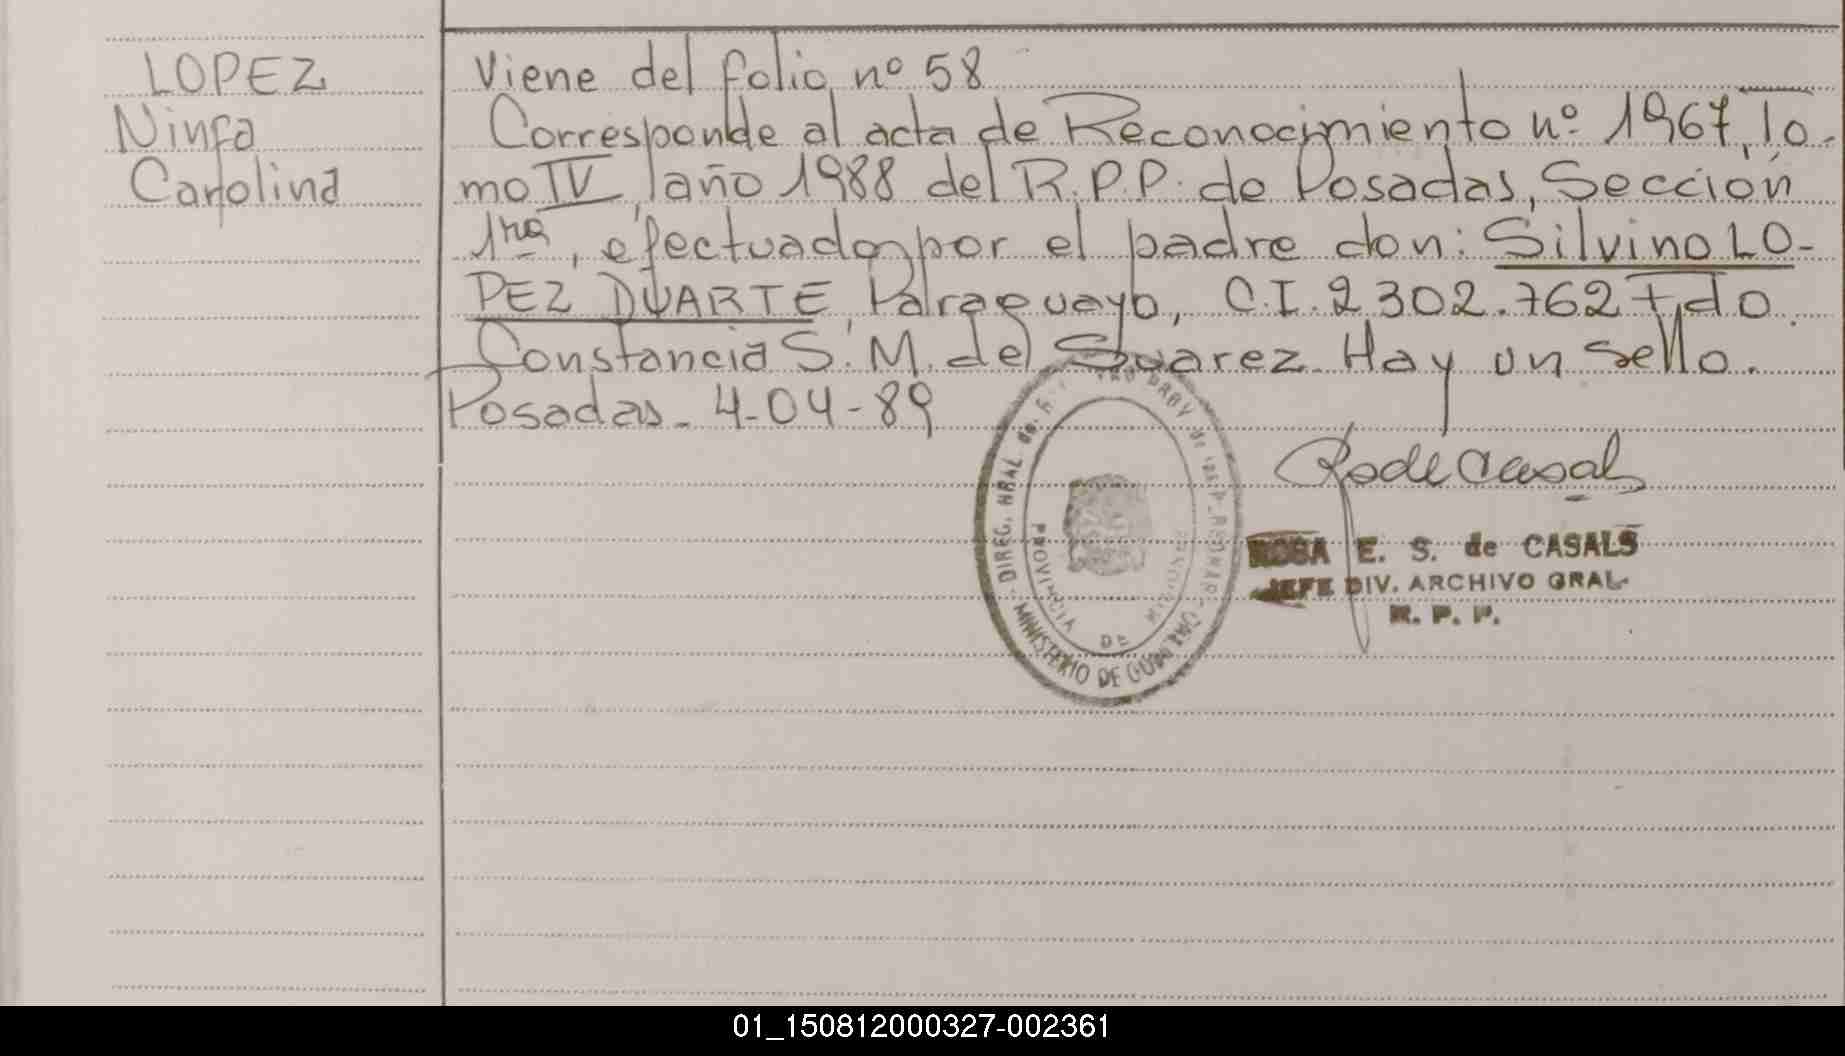 LOPEZ
Ninfa
Carolina
Viene del folio nº 58
Corresponde al acta de Reconocimiento nº 1967, To-
mo IV, año 1988 del R.P.P. de Posadas, Sección
1ra, efectuado por el padre don: Silvino LO-
PEZ DUARTE, Paraguayo, C.I. 2302.762 Fdo.
Constancia S. M. de Suarez. Hay un sello.
Posadas - 4-04-89
DIREC. GRAL de
MINISTERIO DE GOBIERNO
PROVINCIA DE MISIONES
ROSA E. S. de CASALS
JEFE DIV. ARCHIVO GRAL.
R. P. P.
01_150812000327-002361